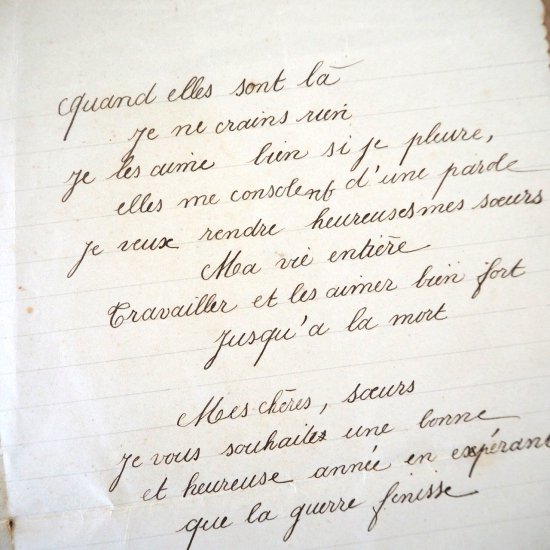 Quand elles sont là
Je ne crains rien
Je les aime bien si je pleure,
elles me consolent d'une parole
Je veux rendre heureuses mes sœurs
Ma vie entière
Travailler et les aimer bien fort
Jusqu'a la mort
Mes chères, sœurs
Je vous souhaites une bonne
et heureuse année en expérant
que la guerre finisse